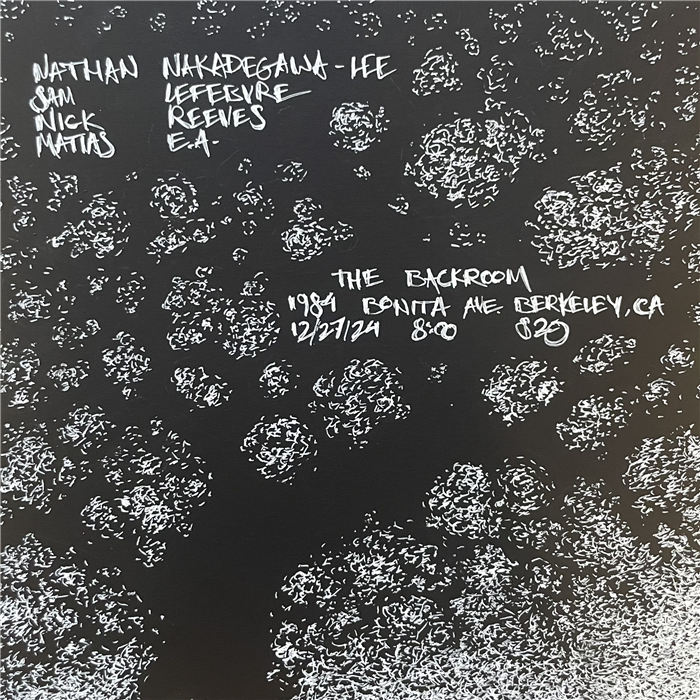 NATHAN NAKADEGAWA-LEE
SAM LEFEBVRE
NICK REEVES
MATIAS E.A.
THE BACKROOM
1984 BONITA AVE. BERKELEY, CA
12/27/24 8:00 $20